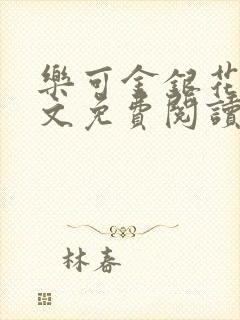 樂可金銀花
文免費閱讀
林春